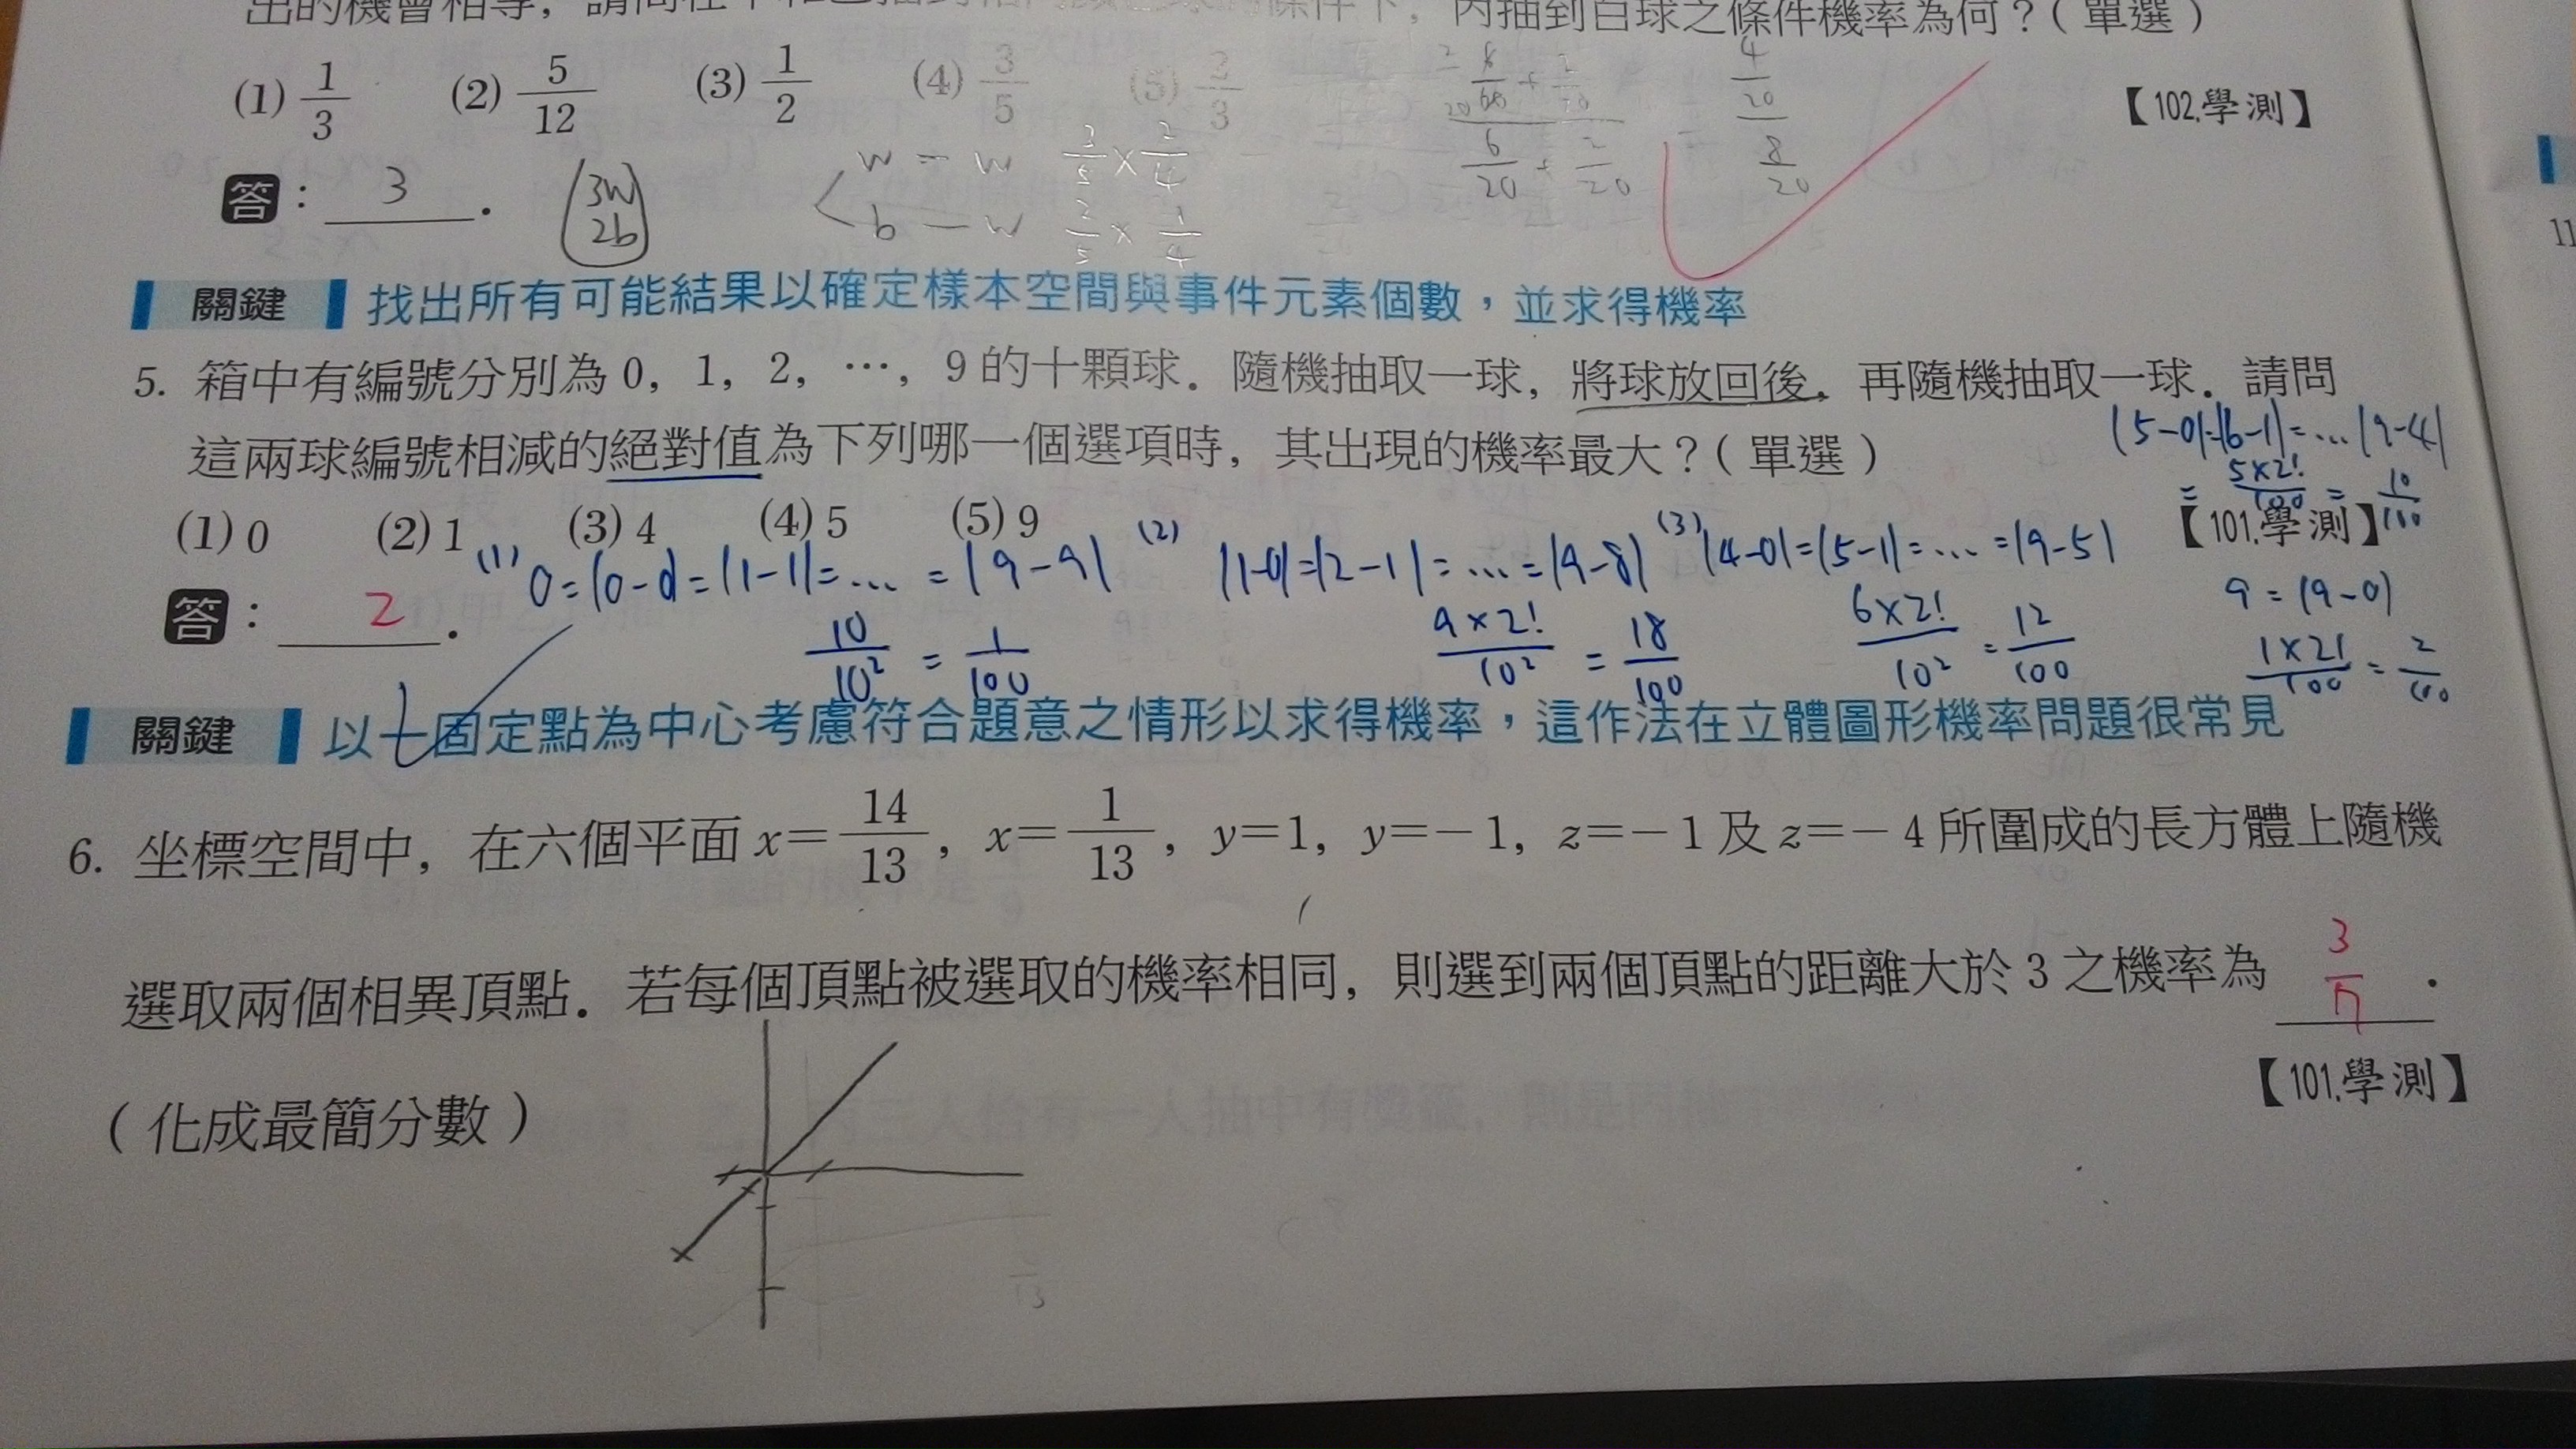 丙抽到白球之條件機率為何？（單選）
(1) 1/3 (2) 5/12 (3) 1/2 (4) 3/5 (5) 2/3
【102.學測】
答： 3 ．
3W
2b
w － w 3/5 × 2/4
b － w 2/5 × 1/4
6/20 + 2/20
4/20
8/20
關鍵 找出所有可能結果以確定樣本空間與事件元素個數，並求得機率
5. 箱中有編號分別為 0，1，2，…，9 的十顆球．隨機抽取一球，將球放回後，再隨機抽取一球．請問
這兩球編號相減的絕對值為下列哪一個選項時，其出現的機率最大？（單選）
|5-0|=|6-1|=…|9-4|
= 5×2!/100 = 10/100
(1) 0 (2) 1 (3) 4 (4) 5 (5) 9
【101.學測】
答： 2 ．
(1) 0=|0-0|=|1-1|=… =|9-9|
10/10² = 1/100
(2) |1-0|=|2-1|=…=|9-8|
9×2!/10² = 18/100
(3) |4-0|=|5-1|=… =|9-5|
6×2!/10² = 12/100
9=|9-0|
1×2!/100 = 2/100
關鍵 以一固定點為中心考慮符合題意之情形以求得機率，這作法在立體圖形機率問題很常見
6. 坐標空間中，在六個平面 x=14/13，x=1/13，y=1，y=－1，z=－1 及 z=－4 所圍成的長方體上隨機
選取兩個相異頂點．若每個頂點被選取的機率相同，則選到兩個頂點的距離大於 3 之機率為 ．
（化成最簡分數）
【101.學測】